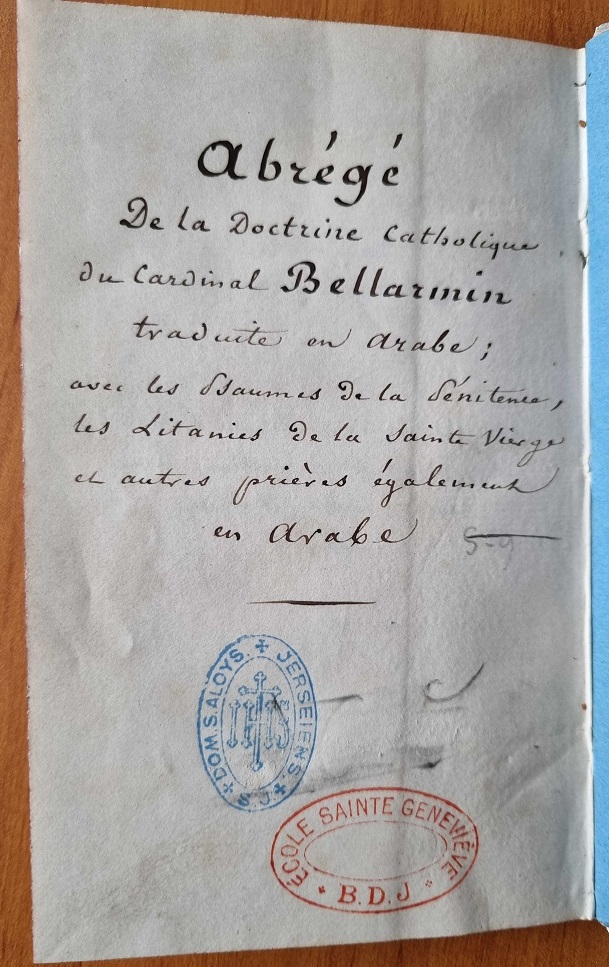 Abrégé
De la Doctrine Catholique
du Cardinal Bellarmin
traduite en Arabe;
avec les Psaumes de la Pénitence,
les Litanies de la Sainte Vierge
et autres prières également
en Arabe
DOM.S.ALOYS. JERSEIENS. S.J.
IHS
ÉCOLE SAINTE GENEVIÈVE
B.D.J